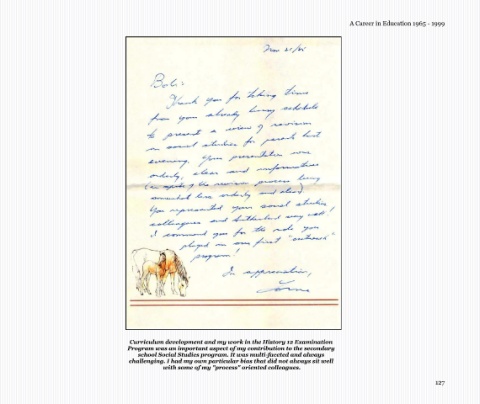 A Career in Education 1965 - 1999
Bob:
Thank you for taking time
from your already busy schedule
to present a review of revision
in social studies for parents last
evening. Your presentation was
orderly, clear and informative
(in spite of the revision process being
somewhat less orderly and clear)
You represented your social studies
colleagues and Sutherland very well!
I commend you for the role you
played in our first "outreach"
program!
In appreciation,
Curriculum development and my work in the History 12 Examination
Program was an important aspect of my contribution to the secondary
school Social Studies program. It was multi-faceted and always
challenging. I had my own particular bias that did not always sit well
with some of my "process" oriented colleagues.
127